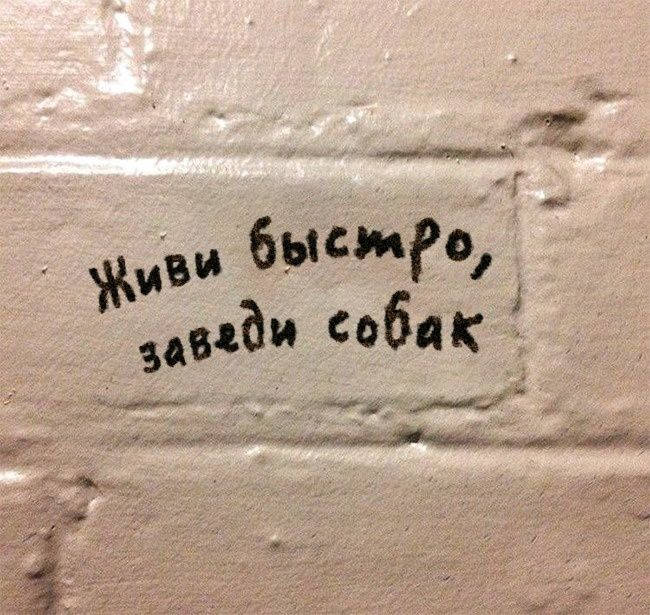 Живи быстро,
заведи собак